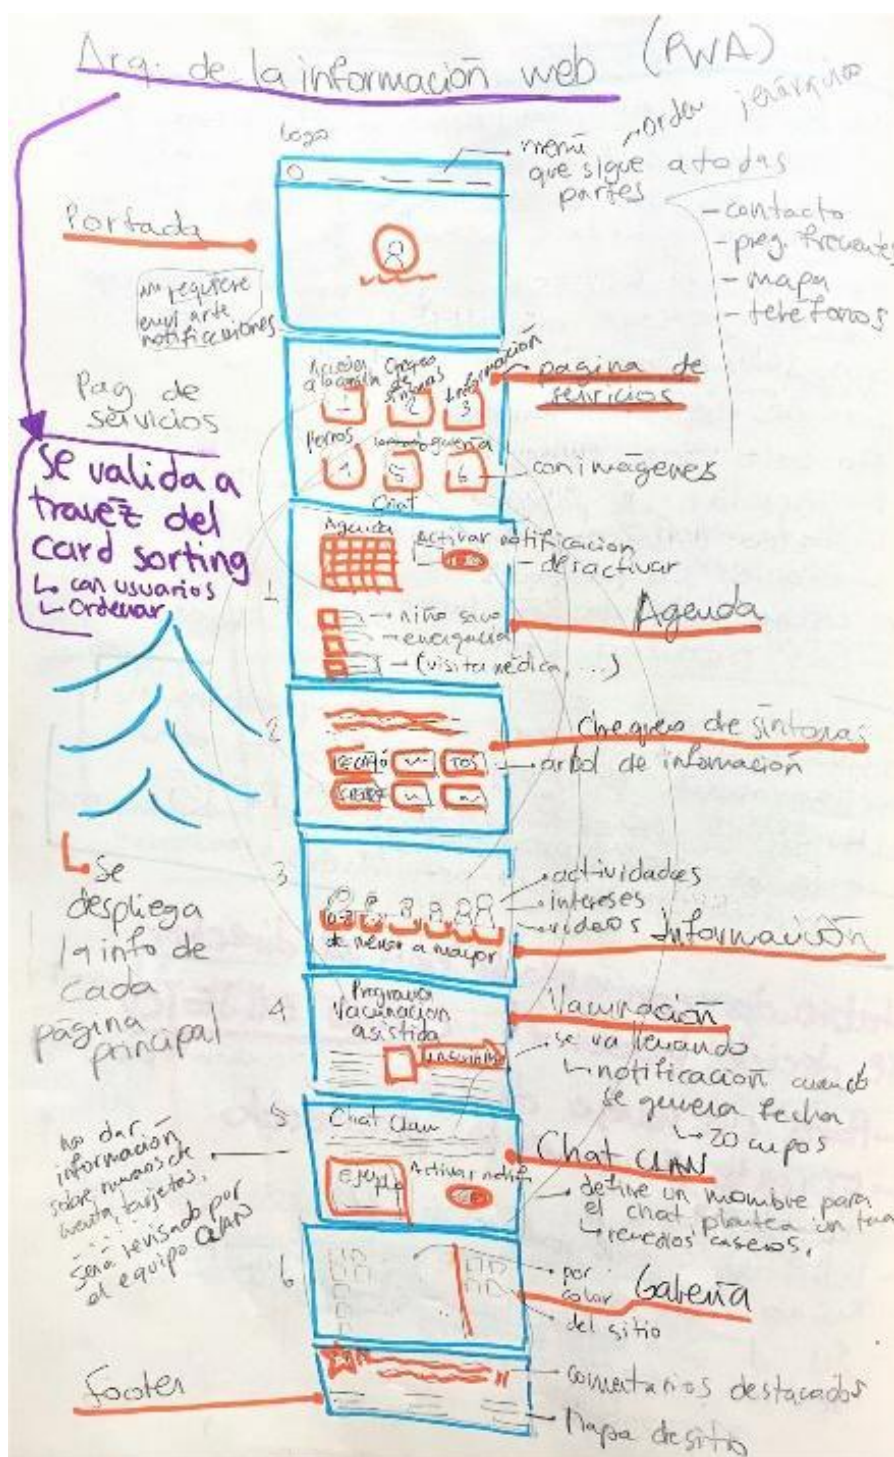 Arq. de la información web (PWA)
Logo
menú
que sigue a todas
partes
orden jerárquico
- contacto
- preg. frecuentes
- mapa
- teléfonos
Portada
no requiere
enviarte
notificaciones
Pag de
servicios
a la consulta
Chequeo
de
síntomas
Información
1
2
3
4
5
6
Chat
pagina de
servicios
con imágenes
Se valida a
travéz del
Card sorting
↳ con usuarios
↳ Ordenar
1
Agenda
Activar notificacion
- desactivar
→ niño sano
→ emergencia
→ (visita médica, ...)
Agenda
2
TOS
Chequeo de síntomas
arbol de información
↳ Se
despliega
la info de
cada
página
principal
3
de menor a mayor
actividades
intereses
videos
Información
4
Programa
Vacunación
asistida
Vacunación
se va llenando
↳ notificación cuando
se genera fecha
↳ 20 cupos
5
Chat Clan
Activar notifi
Chat CLAN
define un nombre para
el chat, plantea un
↳ remedios caseros.
no dar
información
sobre numeros de
cuenta, tarjetas,
será revisado por
el equipo CLAN
6
por
color
del sitio
Footer
comentarios destacados
Mapa de sitio